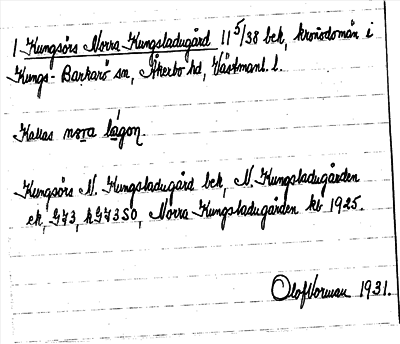 1 Kungsörs Norra Kungsladugård 11 5/38 bek, kronodomän i
Kungs-Barkarö sn, Åkerbo hd, Västmanl. l.
Kallas norra lágon.
Kungsörs N. Kungsladugård bek, N. Kungsladugården
ek, G73, hG73SO, Norra Kungsladugården kb 1925.
Olof Norman 1931.